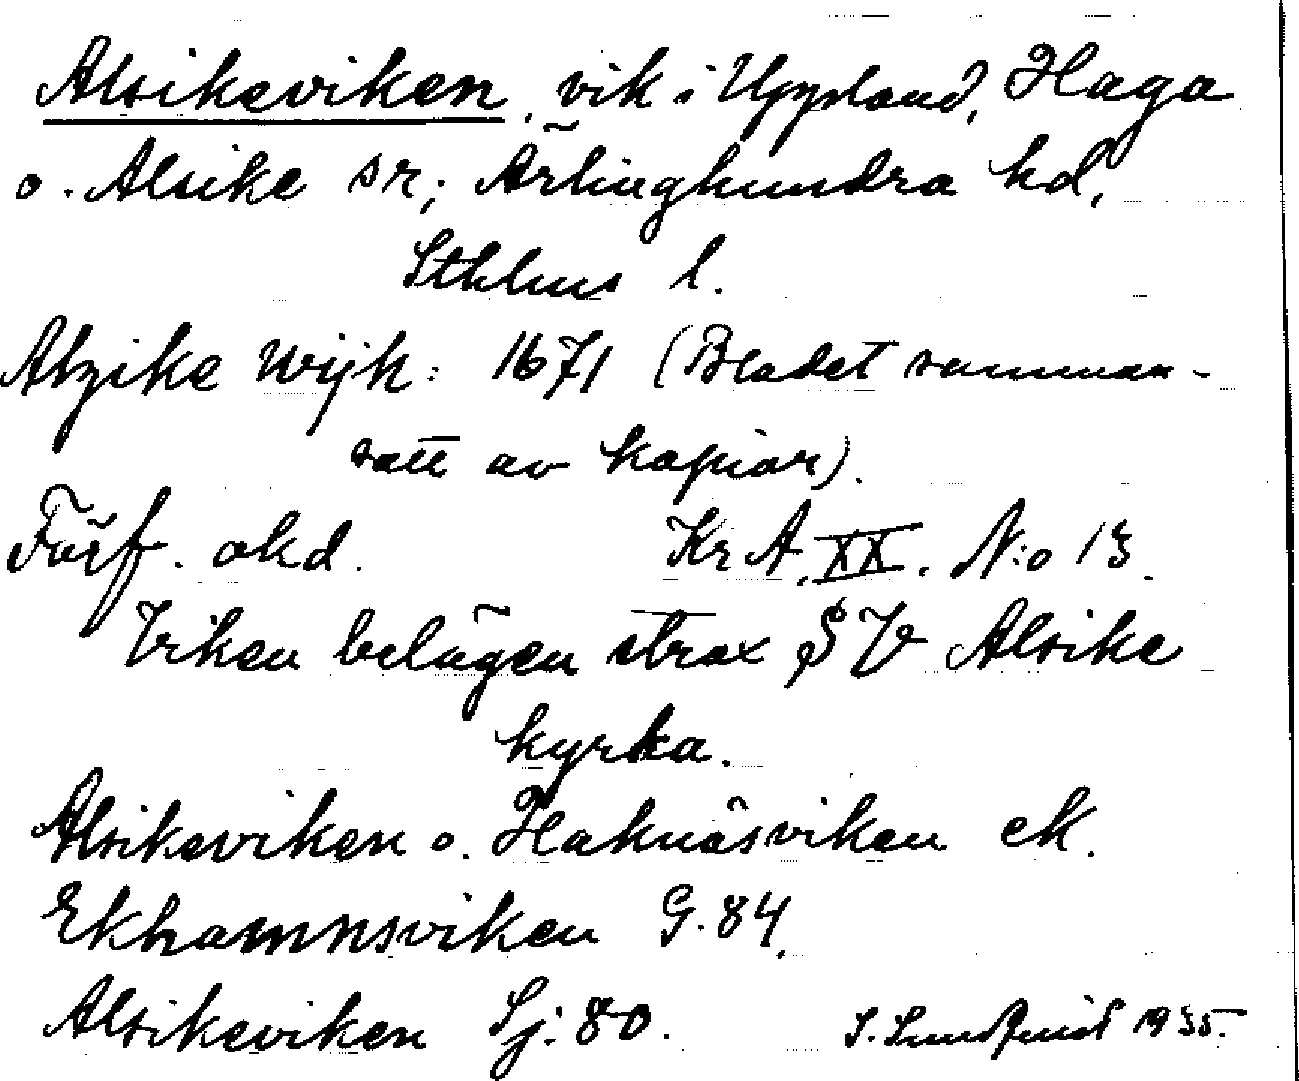 Alsikeviken, vik i Uppland, Haga
o. Alsike sr, Ärlinghundra hd,
Sthlms l.
Alzike Wijk: 1671 (Bladet samman-
satt av kopior).
Förf. okd. Kr A. XX. N:o 13.
Viken belägen strax SV Alsike
kyrka.
Alsikeviken o. Haknäsviken ek.
Ekhamnsviken G. 84.
Alsikeviken Sj: 80. S. Lundquist 1935.